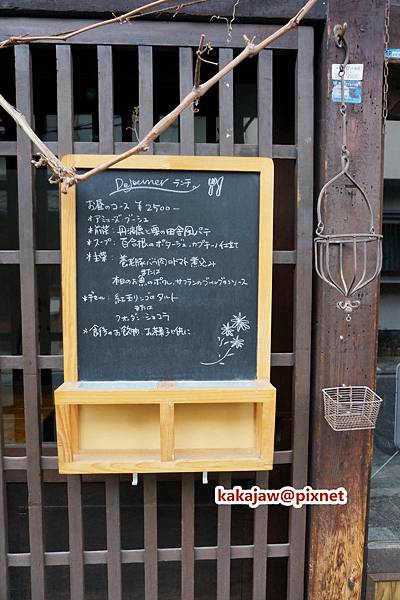 Dejeuner ランチ
お昼のコース ¥2500-
*アミューズ・ブーシュ
*前菜:丹波鹿と鴨の田舎風パテ
*スープ:百合根のポタージュ、カプチーノ仕立て
*主菜: 豚バラ肉のトマト煮込み
または
本日のお魚のポワレ、サフランのブールブランソース
*デセール:紅玉リンゴのタルト
または
フォンダンショコラ
*食後のお飲物、お菓子と供に
kakajaw@pixnet